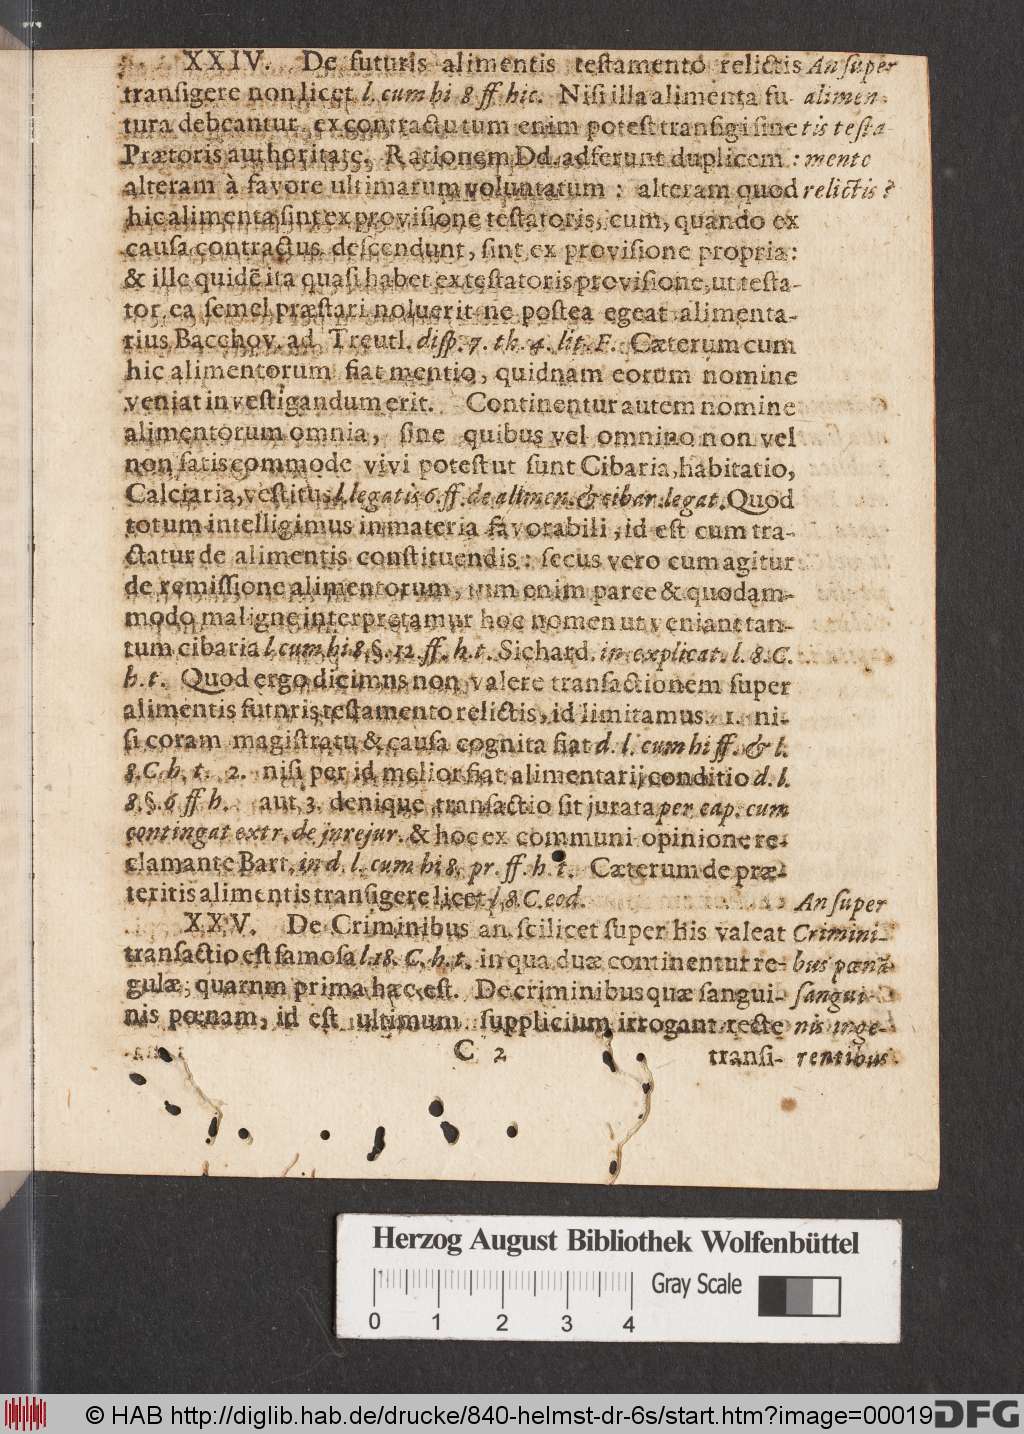 XXIV. De futuris alimentis testamento relictis
transigere non licet l. cum hi 8 ff hic. Nisi illa alimenta fu-
tura debeantur ex contractu tum enim potest transigi sine
Prætoris authoritate. Rationem Dd. adferunt duplicem:
alteram à favore ultimarum voluntatum: alteram quod
hic alimenta sint ex provisione testatoris, cum, quando ex
causa contractus descendunt, sint ex provisione propria:
& ille quidẽ ita quasi habet ex testatoris provisione, ut testa-
tor ea semel præstari noluerit ne postea egeat alimenta-
rius Bacchov. ad Treutl. disp. 7. th. 4. lit. F. Cæterum cum
hic alimentorum fiat mentio, quidnam eorum nomine
veniat investigandum erit. Continentur autem nomine
alimentorum omnia, sine quibus vel omnino non vel
non satis commode vivi potest ut sunt Cibaria, habitatio,
Calciaria, vestitus l. legatis 6. ff. de alimen. & cibar. legat. Quod
totum intelligimus in materia favorabili, id est cum tra-
ctatur de alimentis constituendis: secus vero cum agitur
de remissione alimentorum, tum enim parce & quodam-
modo maligne interpretamur hoc nomen ut veniant tan-
tum cibaria l. cum hi 8. §. 12. ff. h. t. Sichard. in explicat. l. 8. C.
h. t. Quod ergo dicimus non valere transactionem super
alimentis futuris testamento relictis, id limitamus. 1. ni-
si coram magistratu & causa cognita fiat d. l. cum hi ff. & l.
8. C. h. t. 2. nisi per id melior fiat alimentarij conditio d. l.
8. §. 6 ff h. aut 3. denique transactio sit jurata per cap. cum
contingat extr. de jurejur. & hoc ex communi opinione re-
clamante Bart. in d. l. cum hi 8. pr. ff. h. t. Cæterum de præ-
teritis alimentis transigere licet l. 8. C. eod.
XXV. De Criminibus an scilicet super his valeat
transactio est famosa l. 18. C. h. t. in qua duæ continentur re-
gulæ, quarum prima hæc est. De criminibus quæ sangui-
nis pœnam, id est ultimum supplicium irrogant recte
C 2 transi-
An super
alimen-
tis testa-
mento
relictis?
An super
Crimini-
bus pœnã
sangui-
nis inge-
rentibus
Herzog August Bibliothek Wolfenbüttel
Gray Scale
0 1 2 3 4
© HAB http://diglib.hab.de/drucke/840-helmst-dr-6s/start.htm?image=00019
DFG